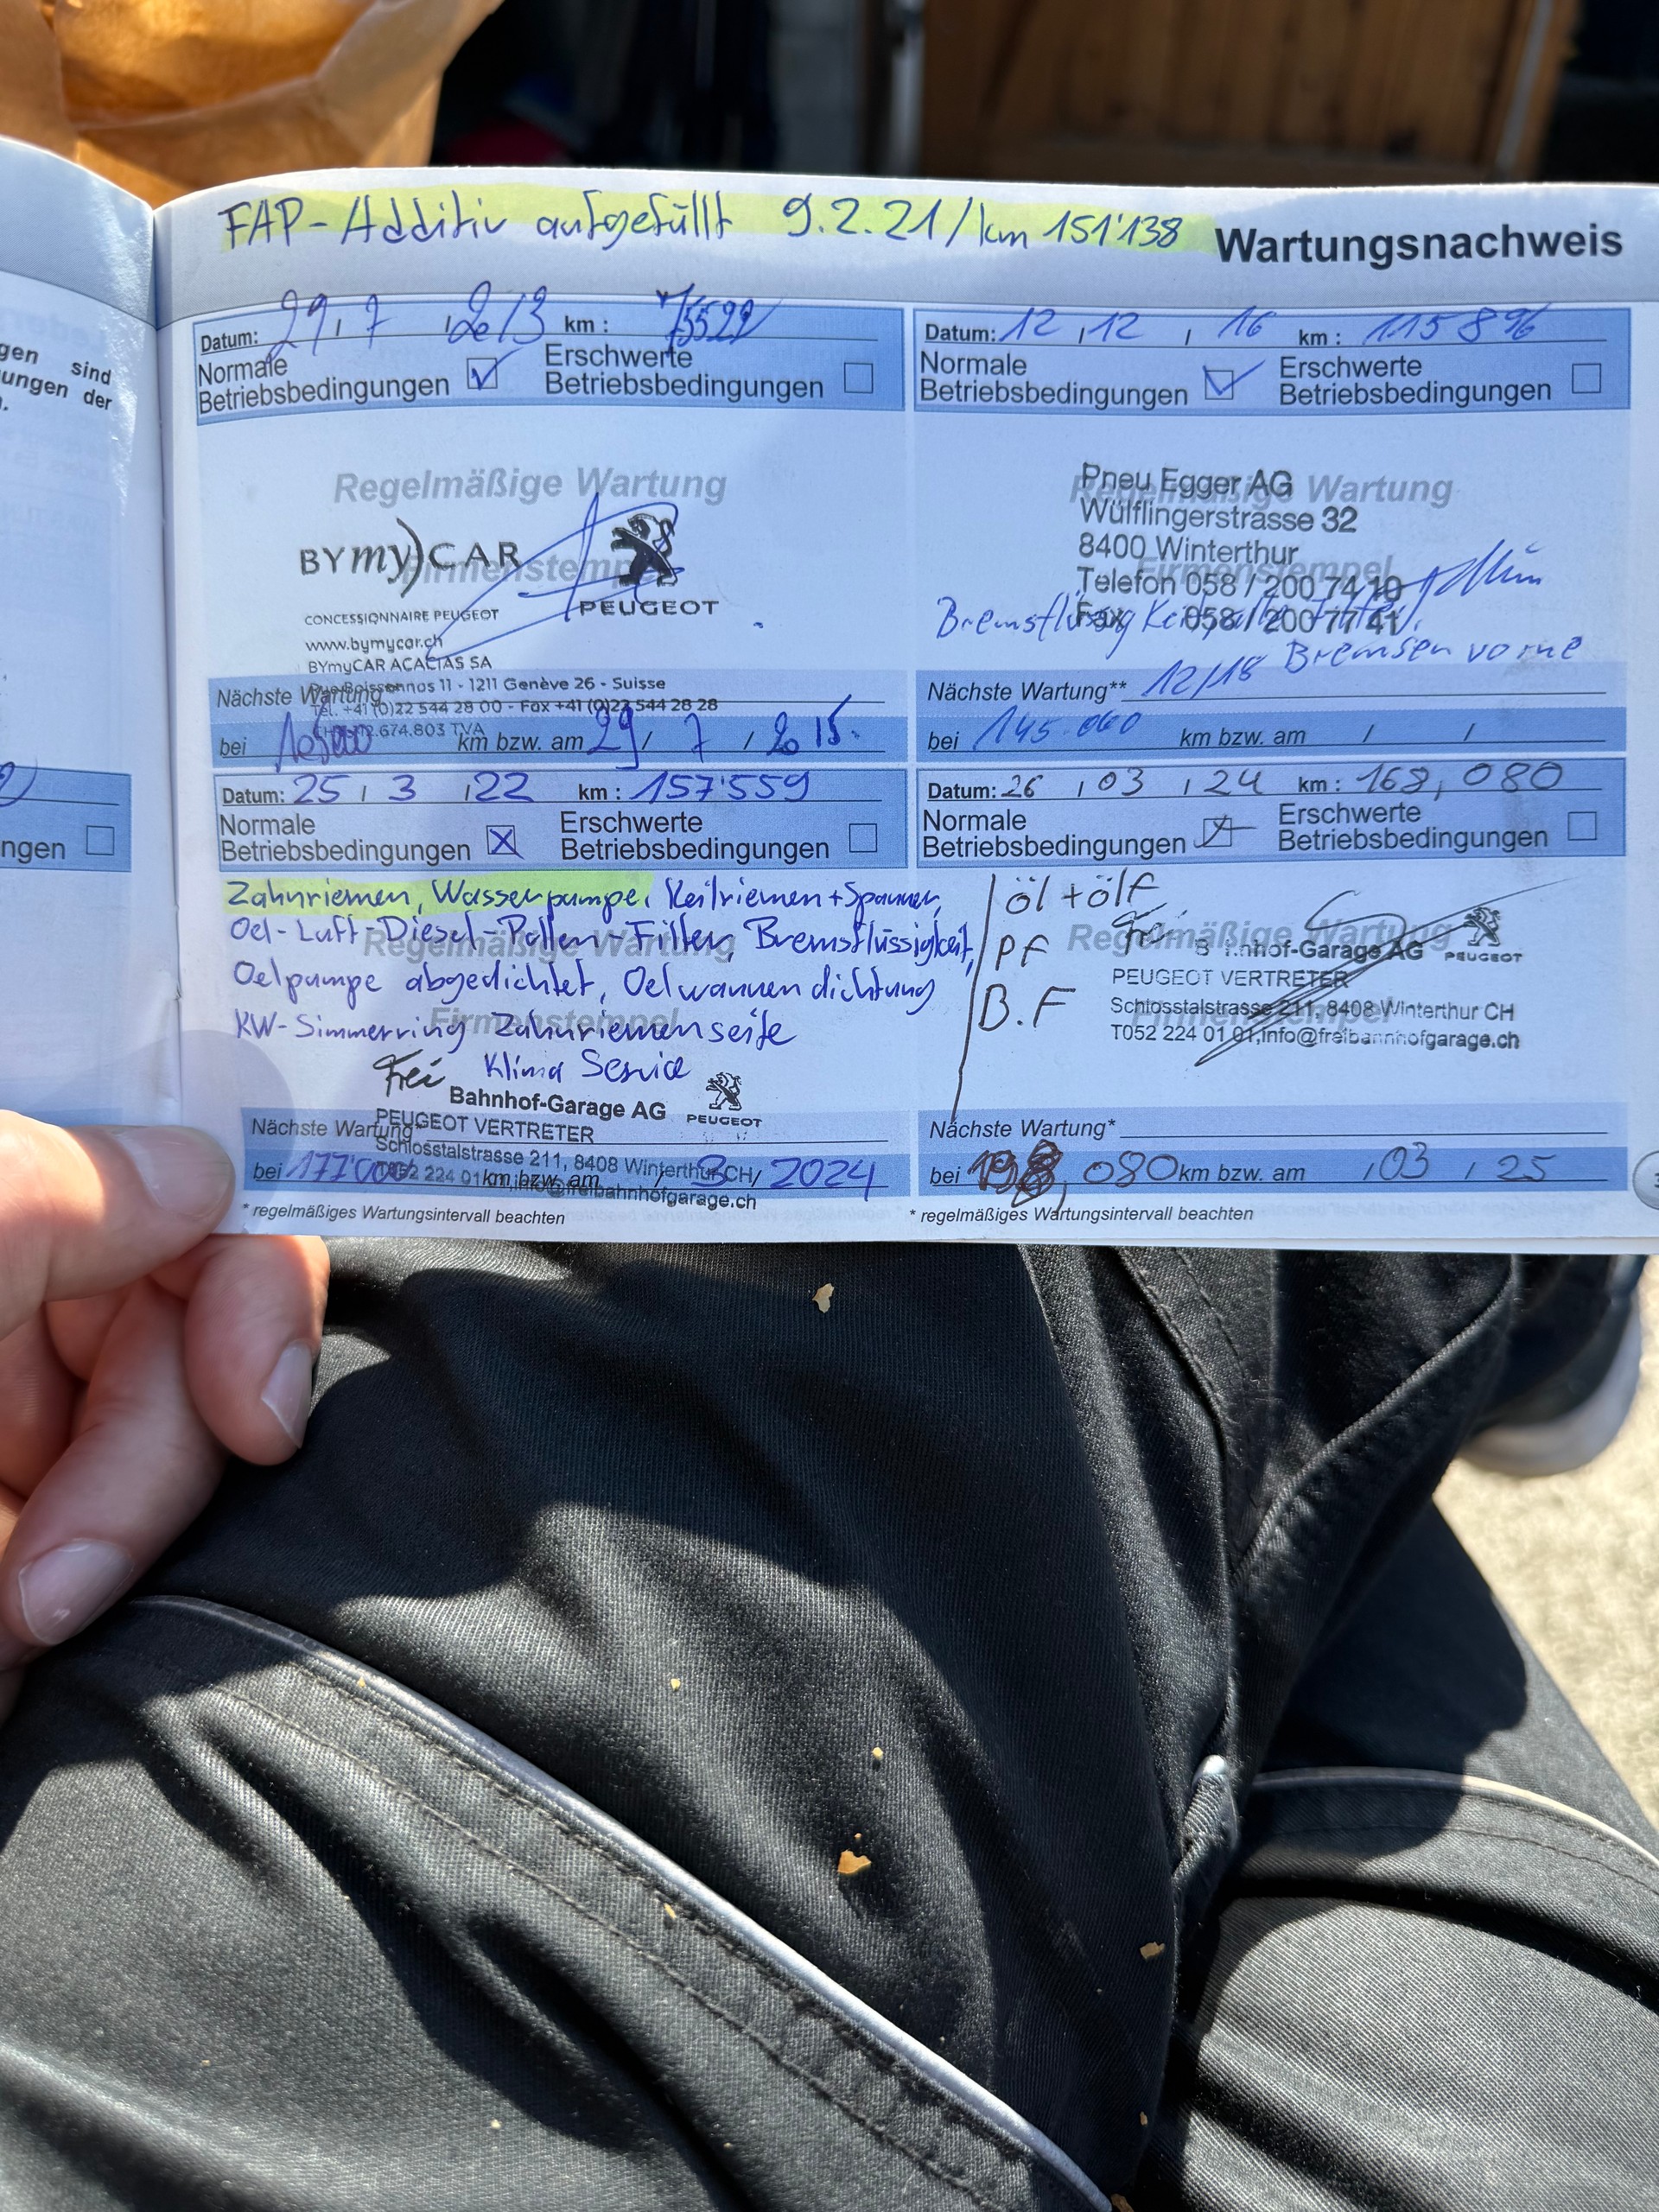 FAP-Additiv aufgefüllt 9.2.21/km 151'138
Wartungsnachweis
gen sind
ungen der
ngen
Datum: 29 / 7 / 2013 km :
Normale
Betriebsbedingungen
Erschwerte
Betriebsbedingungen
Regelmäßige Wartung
Firmenstempel
BYmy)CAR
PEUGEOT
CONCESSIONNAIRE PEUGEOT
www.bymycar.ch
BYmyCAR ACACIAS SA
11 - 1211 Genève 26 - Suisse
Tél. +41 (0)22 544 28 00 - Fax +41 (0)22 544 28 28
Nächste Wartung*
bei km bzw. am 29 / 7 / 2015.
Datum: 12 / 12 / 16 km : 115 896
Normale
Betriebsbedingungen
Erschwerte
Betriebsbedingungen
Regelmäßige Wartung
Firmenstempel
Pneu Egger AG
Wülflingerstrasse 32
8400 Winterthur
Telefon 058 / 200 74 10
Fax 058 / 200 77 41
Bremsflüssig
Bremsen vorne
Nächste Wartung** 12/18
bei 145.000 km bzw. am / /
Datum: 25 / 3 / 22 km : 157'559
Normale
Betriebsbedingungen
Erschwerte
Betriebsbedingungen
Zahnriemen, Wasserpumpe, Keilriemen + Spanner,
Oel-Luft-Diesel-Pollen-Filter, Bremsflüssigkeit,
Regelmäßige Wartung
Oelpumpe abgedichtet, Oelwannendichtung
KW-Simmerring Zahnriemenseite
Firmenstempel
Klima Service
Frei Bahnhof-Garage AG PEUGEOT
PEUGEOT VERTRETER
Schlosstalstrasse 211, 8408 Winterthur CH
Nächste Wartung*
bei 177'000 km bzw. am / 3 / 2024
* regelmäßiges Wartungsintervall beachten
Datum: 26 / 03 / 24 km : 168,080
Normale
Betriebsbedingungen
Erschwerte
Betriebsbedingungen
öl + ölf
PF
B.F
Regelmäßige Wartung
Firmenstempel
Frei B nhof-Garage AG PEUGEOT
PEUGEOT VERTRETER
Schlosstalstrasse 211, 8408 Winterthur CH
T052 224 01 01,info@freibahnhofgarage.ch
Nächste Wartung*
bei 080 km bzw. am / 03 / 25
* regelmäßiges Wartungsintervall beachten